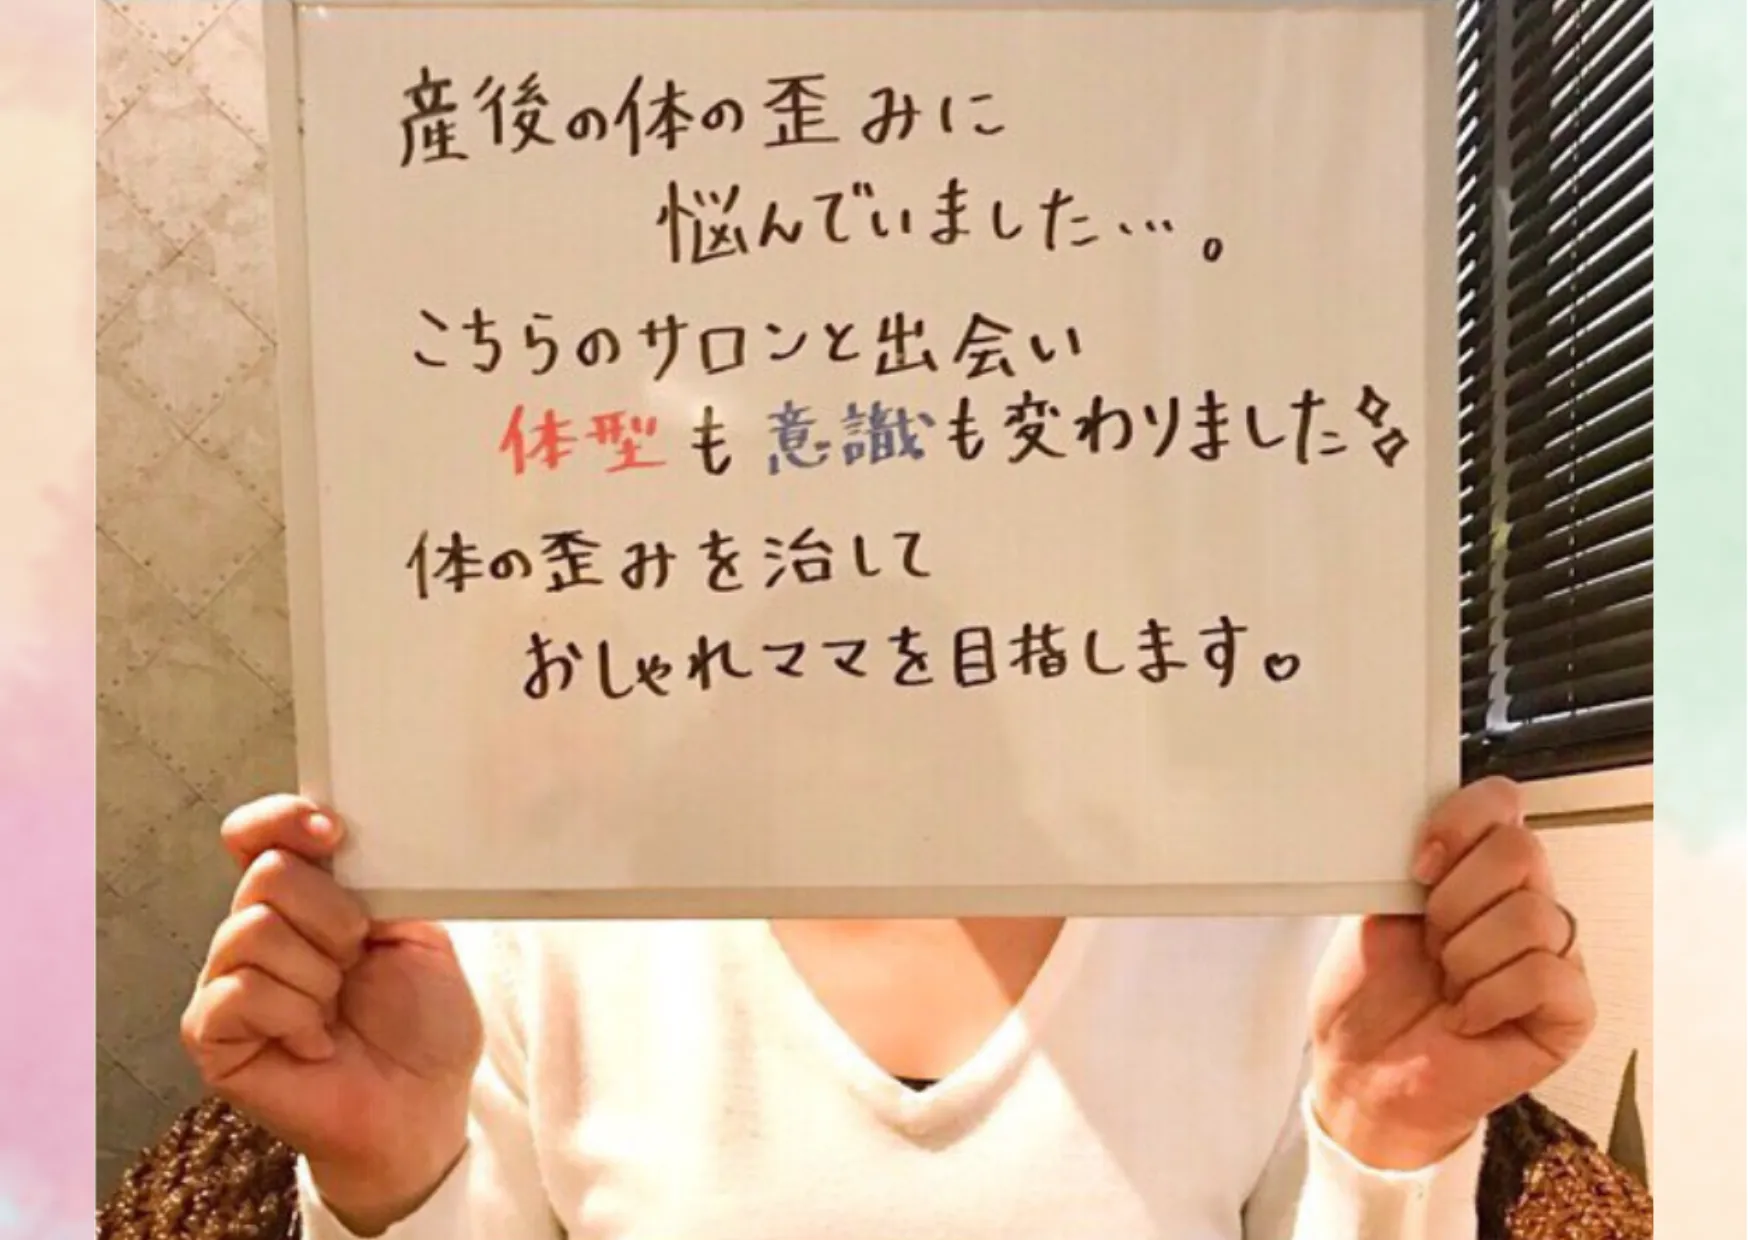 産後の体の歪みに
悩んでいました…。
こちらのサロンと出会い
体型も意識も変わりました
体の歪みを治して
おしゃれママを目指します♡